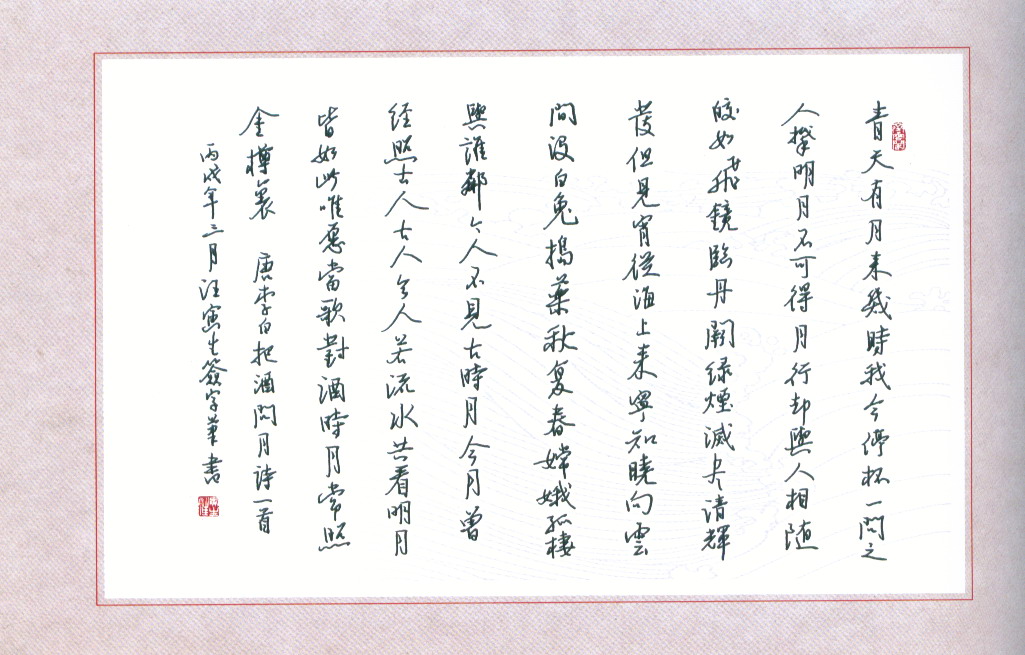 青天有月来幾時我今停杯一問之
人攀明月不可得月行却與人相随
皎如飛鏡臨丹闕緑煙滅尽清輝
發但見宵從海上来寧知曉向雲
間没白兔搗藥秋复春嫦娥孤棲
與誰鄰今人不見古時月今月曾
经照古人古人今人若流水共看明月
皆如此唯愿當歌對酒時月常照
金樽裏 唐李白把酒問月詩一首
丙戌年三月汪寅生簽字筆書